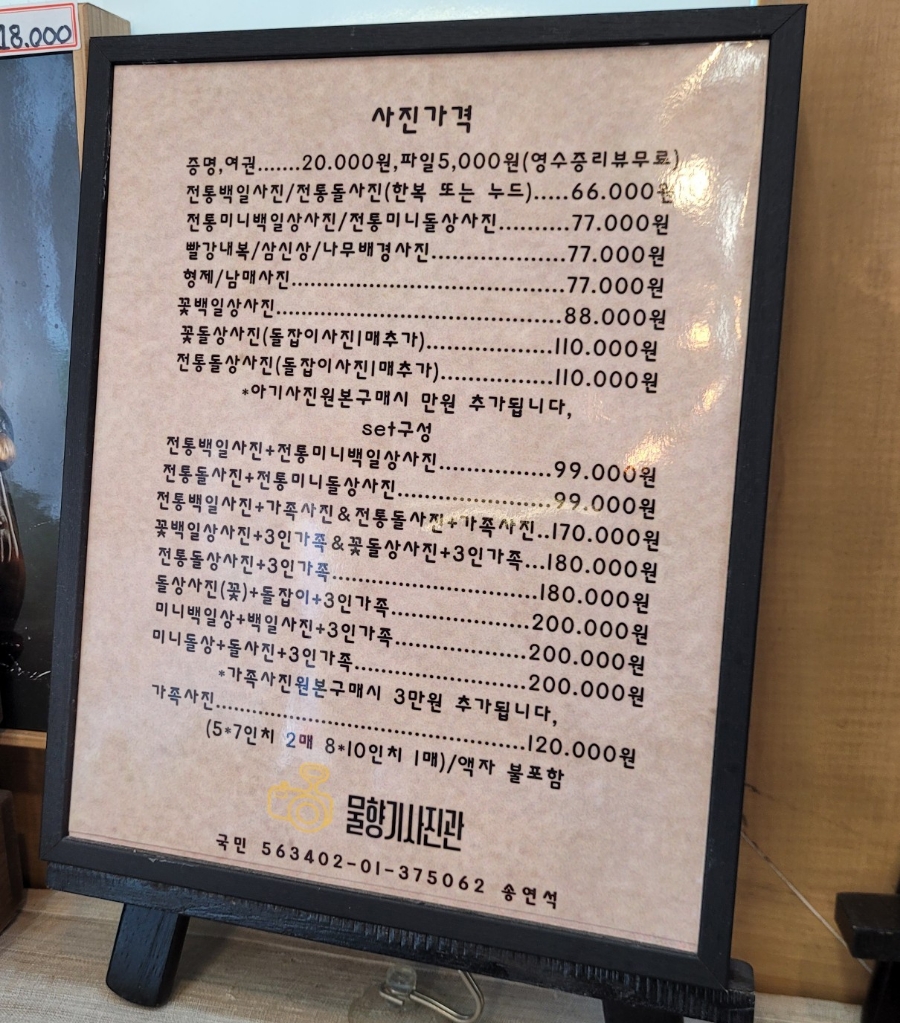 18.000
사진가격
증명,여권.......20.000원,파일5,000원(영수증리뷰무료)
전통백일사진/전통돌사진(한복 또는 누드).....66.000원
전통미니백일상사진/전통미니돌상사진..........77.000원
빨강내복/삼신상/나무배경사진...................77.000원
형제/남매사진.......................................77.000원
꽃백일상사진.........................................88.000원
꽃돌상사진(돌잡이사진1매추가)..................110.000원
전통돌상사진(돌잡이사진1매추가)................110.000원
*아기사진원본구매시 만원 추가됩니다,
set구성
전통백일사진+전통미니백일상사진................99.000원
전통돌사진+전통미니돌상사진......................99.000원
전통백일사진+가족사진&전통돌사진+가족사진..170.000원
꽃백일상사진+3인가족&꽃돌상사진+3인가족...180.000원
전통돌상사진+3인가족..............................180.000원
돌상사진(꽃)+돌잡이+3인가족....................200.000원
미니백일상+백일사진+3인가족...................200.000원
미니돌상+돌사진+3인가족.........................200.000원
*가족사진원본구매시 3만원 추가됩니다,
가족사진.............................................120.000원
(5*7인치 2매 8*10인치 1매)/액자 불포함
물향기사진관
국민 563402-01-375062 송연석